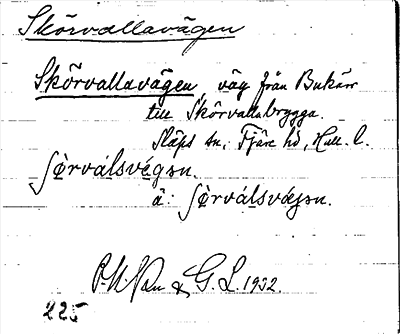 Skörvallavägen
Skörvallavägen, väg från Bukärr
till Skörvallabrygga.
Släps sn, Fjäre hd, Hall. l.
ʃørválsvégən.
ä: ʃørválsvægən.
& G. L. 1932.
225